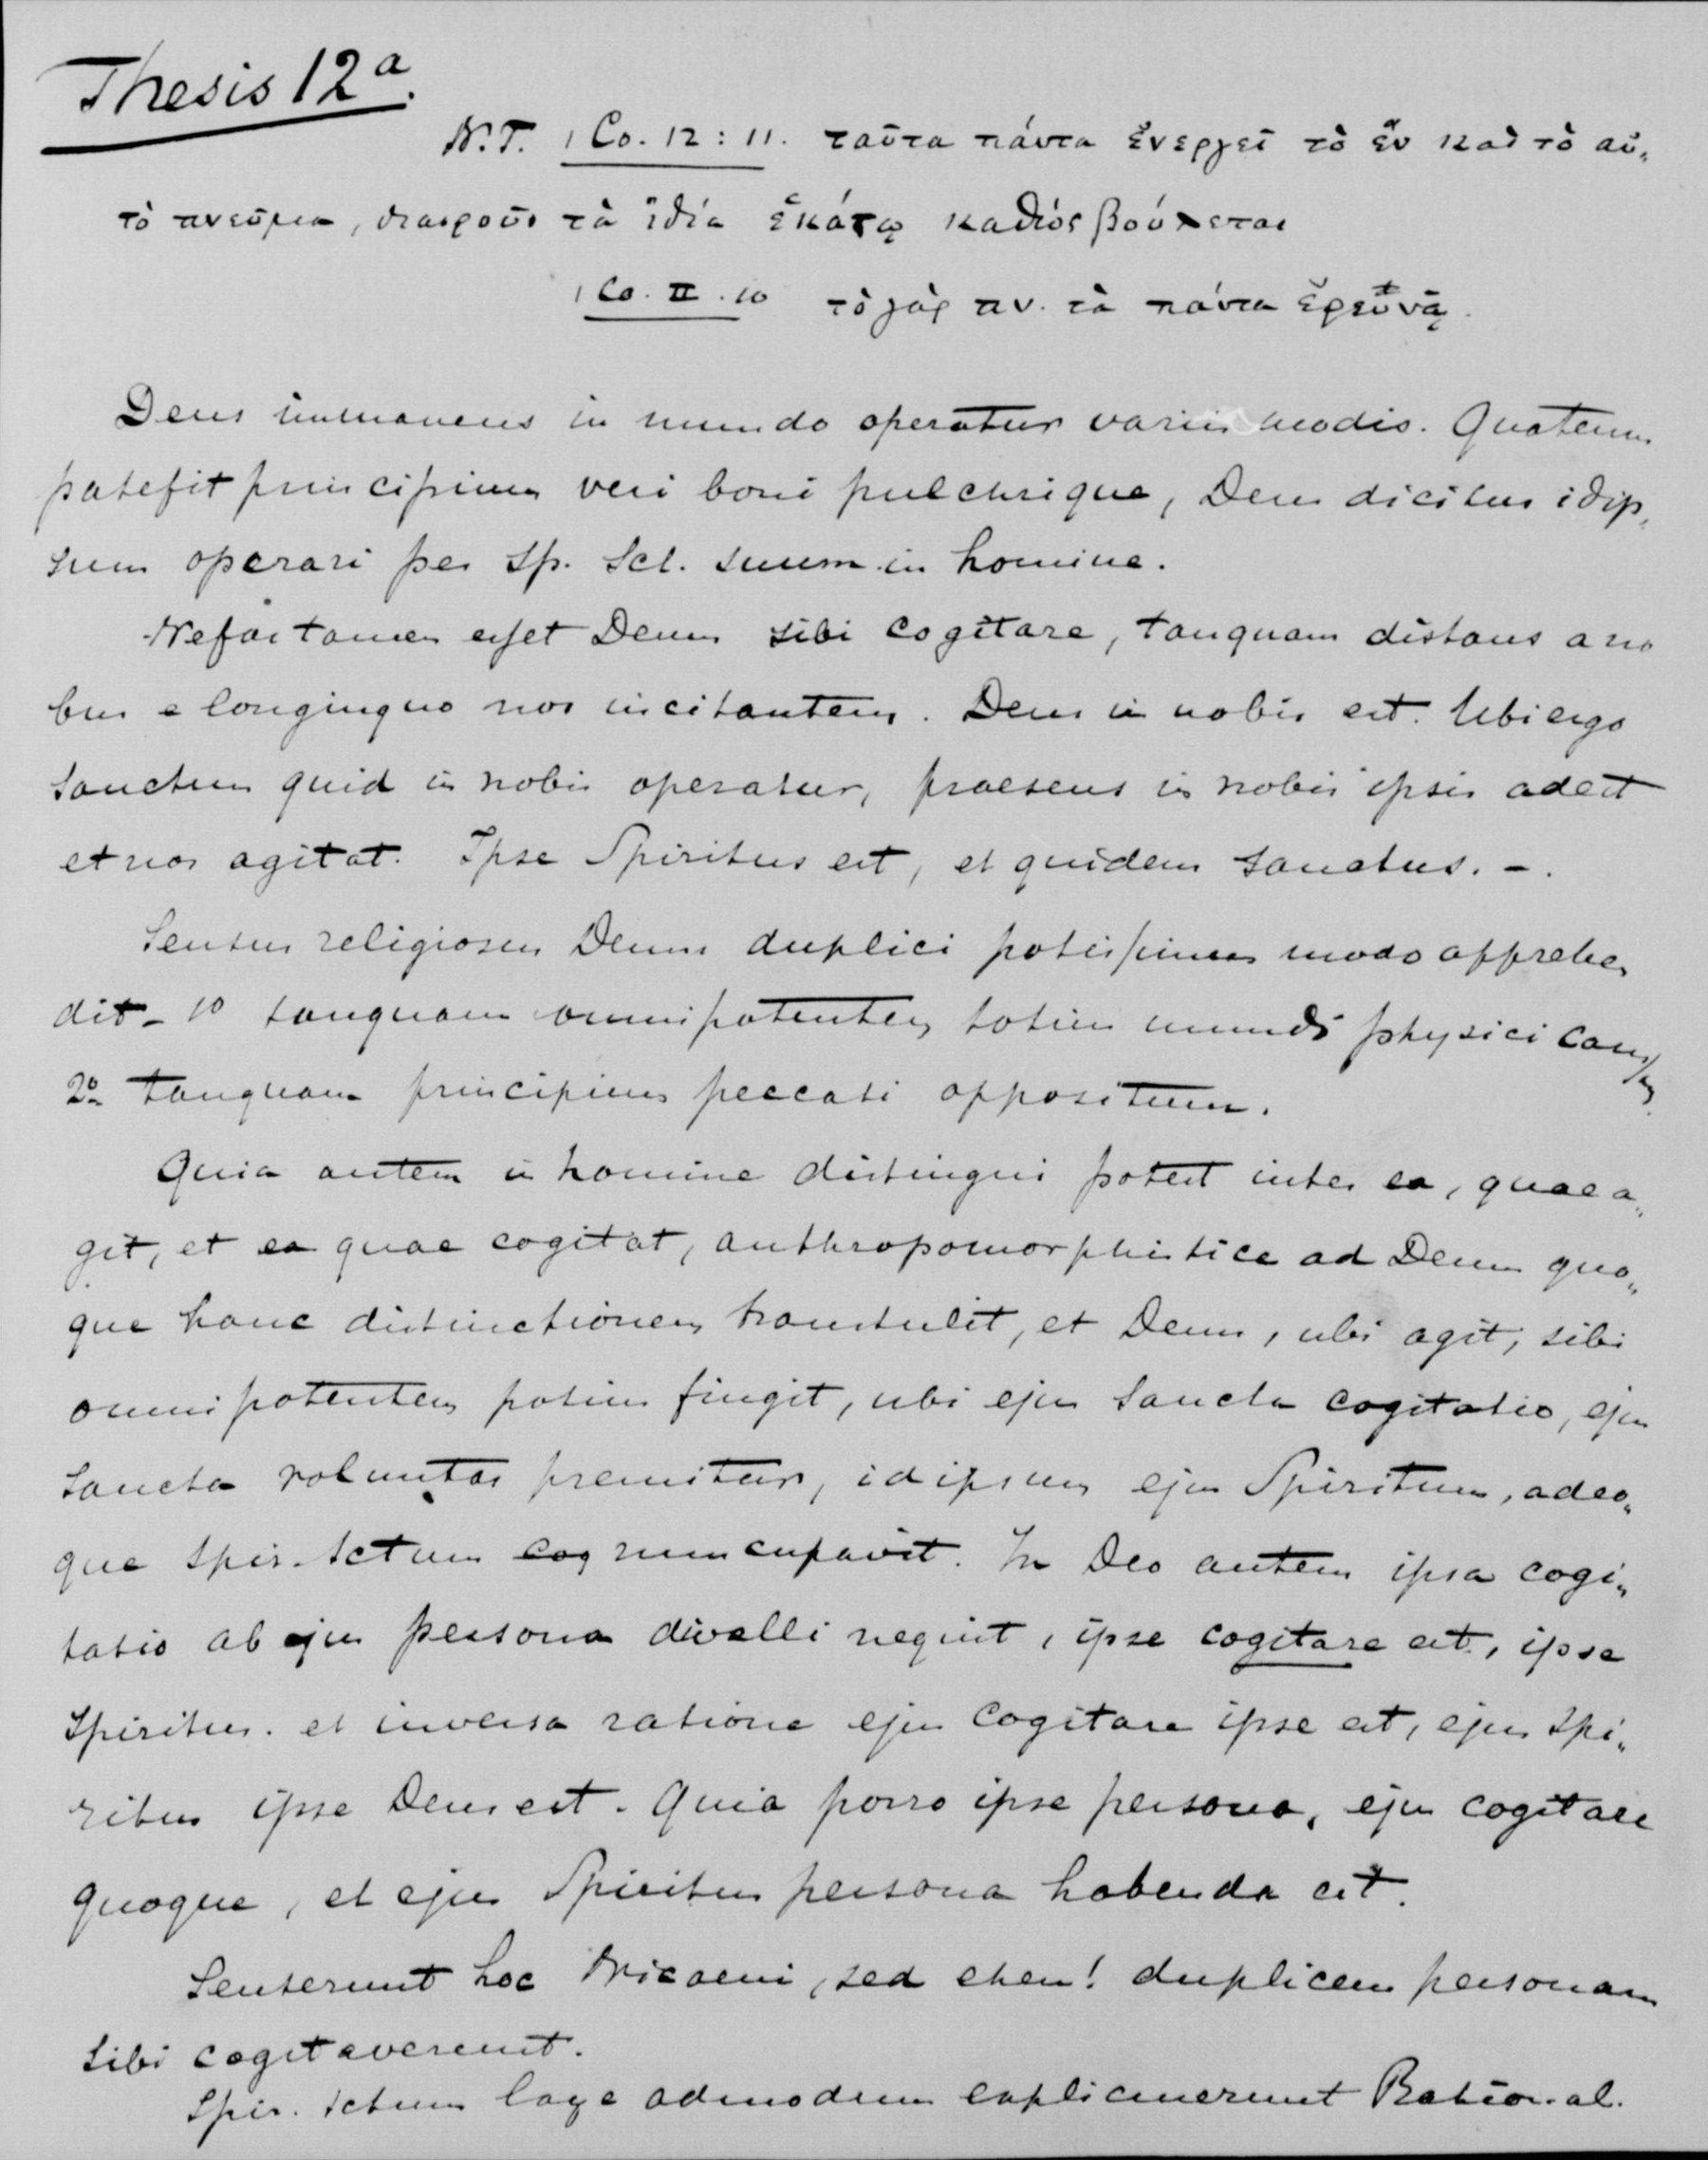 Thesis 12a.
N.T. 1 Co. 12 : 11. ταῦτα πάντα ἐνεργεῖ τὸ ἓν καὶ τὸ αὐ„
τὸ πνεῦμα, διαιροῦν τὰ ἰδία ἑκάςῳ καθὼς βούλεται
1 Co. II. 10 τὸ γὰρ πν. τὰ πάντα ἐρευνᾷ.
Deus immanens in mundo operatur variis modis. Quatenus
patefit principium veri boni pulchrique, Deus dicitur idip„
sum operari per Sp. Sct. suum in homine.
Nefas tamen esset Deum sibi cogitare, tanquam distans a no
bis e longinquo nos incitantem. Deus in nobis est. Ubi ergo
sanctum quid in nobis operatur, praesens in nobis ipsis adest
et nos agitat. Ipse Spiritus est, et quidem sanctus. -.
Sensus religiosus Deum duplici potissimum modo apprehen
dit - 1o tanquam omnipotentem totius mundi physici causam
2o tanquam principium peccati oppositum.
Quia autem in homine distingui potest inter ea, quae a„
git, et ea quae cogitat, anthropomorphistice ad Deum quo„
que hanc distinctionem transtulit, et Deum, ubi agit, sibi
omnipotentem potius fingit, ubi ejus sancta cogitatio, ejus
sancta voluntas premitur, idipsum ejus Spiritum, adeo„
que spir. sctum cog nuncupavit. In Deo autem ipsa cogi„
tatio ab ejus persona divelli nequit, ipse cogitare est, ipse
Spiritus. et inversa ratione ejus cogitare ipse est, ejus Spi„
ritus ipse Deus est. Quia porro ipse persona, ejus cogitare
quoque, et ejus Spiritus persona habenda est.
Senserunt hoc Nicaeni, sed eheu! duplicem personam
sibi cogitaverunt.
Spir. sctum laxe admodum explicuerunt Rational.